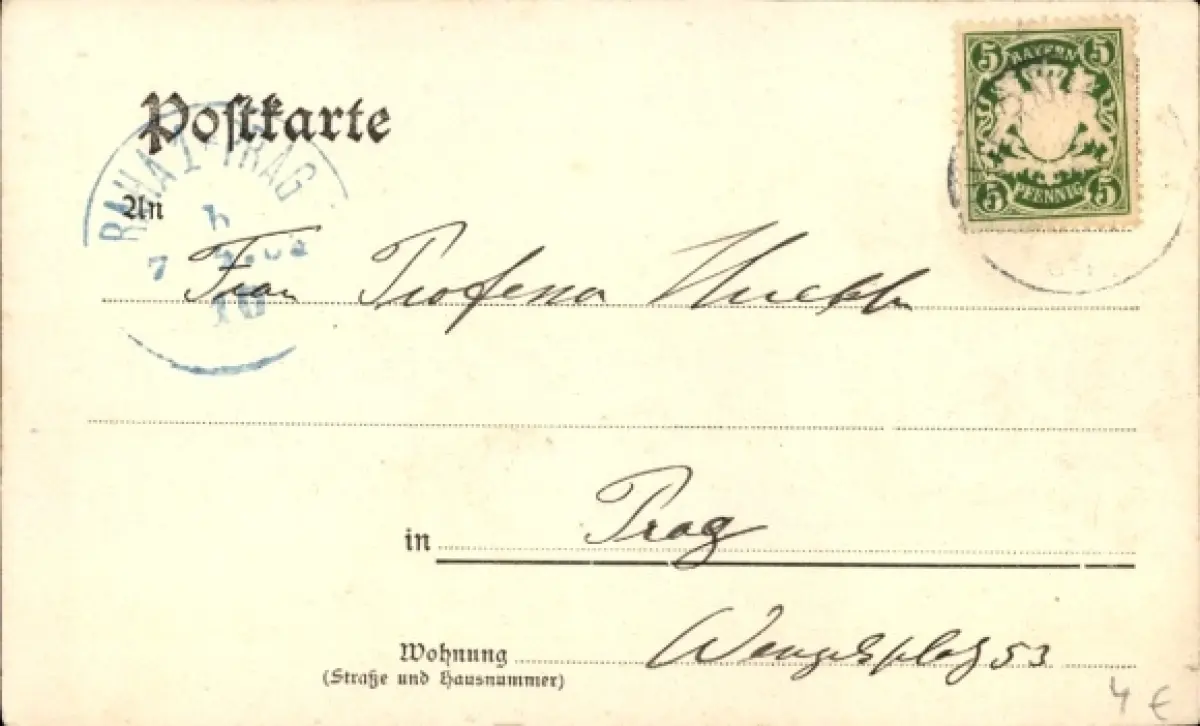 5 BAYERN 5
5 PFENNIG 5
Postkarte
PRAG
An
h
7
10
Frau Professor
in Prag
Wohnung Wenzelsplatz 53
(Straße und Hausnummer)
4 €